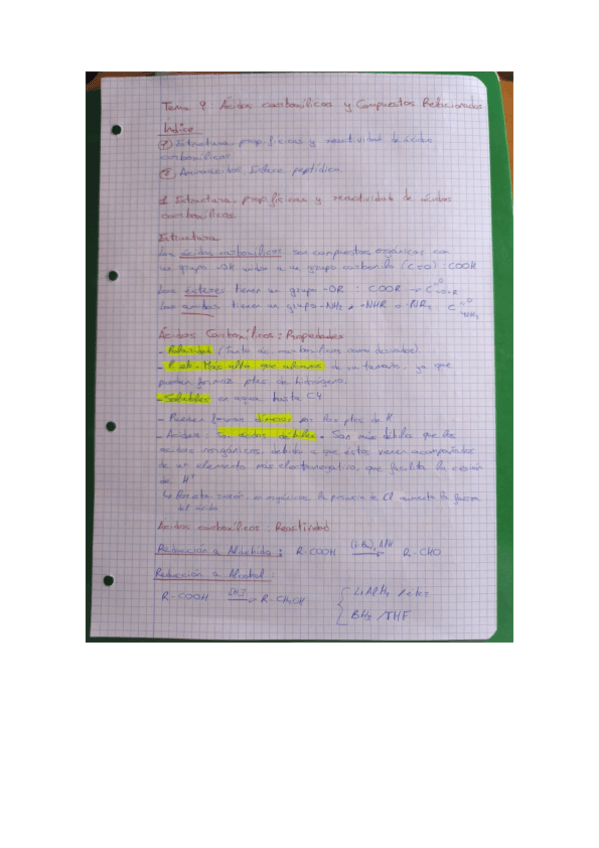 Tema 9: Ácidos carboxílicos y Compuestos Relacionados
Índice
① Estructura, prop. físicas y reactividad de ácidos
carboxílicos
② Aminoácidos. Enlace peptídico
1. Estructura, prop. físicas y reactividad de ácidos
carboxílicos.
Estructura
Los ácidos carboxílicos son compuestos orgánicos con
un grupo -OH unido a un grupo carbonilo (C=O) : COOH
Los ésteres tienen un grupo -OR : COOR → C=O-OR
Las amidas tienen un grupo -NH2, -NHR o -NR2 : C=O-NH2
Ácidos Carboxílicos: Propiedades
- Polaridad (Tanto de carboxílicos como derivados)
- P. eb. Más alto que de su tamaño, ya que
pueden formar ptes de hidrógeno.
- Solubles en agua hasta C4
- Pueden formar dímeros por los ptes de H
- Acidez: Son ácidos débiles. Son más débiles que los
ácidos inorgánicos, debido a que éstos vienen acompañados
de un elemento más electronegativo, que facilita la cesión
de H+
↳ Por esta razón, en orgánicos, la presencia de Cl aumenta la fuerza
del ácido
Ácidos carboxílicos: Reactividad
Reducción a Aldehído: R-COOH (i-Bu)2AlH → R-CHO
Reducción a Alcohol:
R-COOH [H] → R-CH2OH { LiAlH4 /éter
BH3/THF